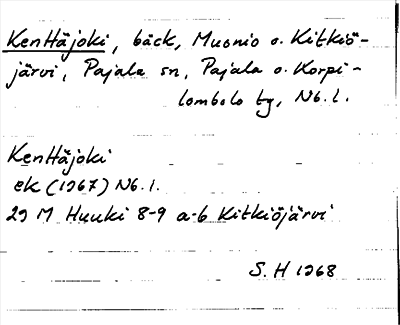 Kenttäjoki, bäck, Muonio o. Kitkiö-
järvi, Pajala sn, Pajala o. Korpi-
lombolo tg, Nb. l.
Kenttäjoki
ek (1967) Nb. l.
29 M Huuki 8-9 a-b Kitkiöjärvi
S. H 1968